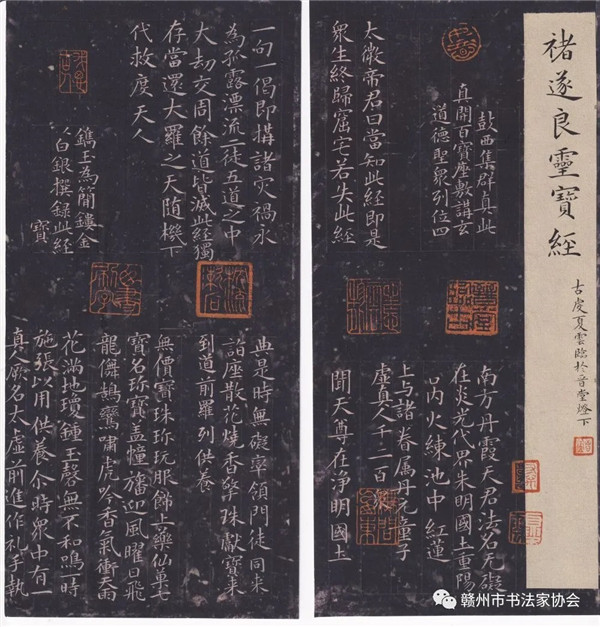 褚遂良靈寶經
古虔夏雲臨於晉堂燈下
鼓西集群真此
真開百寶座敷講玄
道德聖衆列位四
太微帝君曰當知此經即是
衆生終歸窟宅若失此經
南方丹霞天君法名无礙
在炎光代界朱明國土重陽
丙火練池中紅蓮
上与諸眷属丹元童子
虛真人千二百
聞天尊在淨明國土
一句一偈即構諸灾禍永
為孤露漂流一徒五道之中
大劫交周餘道皆滅此經獨
存當還大羅之天随機下
代救度天人
鐫玉為簡鏤金
以白銀撰録此經
寶
典是時無礙宰領門徒同来
詣座散花燒香擎珠獻寶来
到道前羅列供養
無價寶珠珎玩服餙上藥仙草七
寶名珎寶盖幢旛迎風曜日飛
龍儛鵠鸞嘯虎吟香氣衝天雨
花滿地瓊鍾玉磬無不和鳴一時
施張以用供養尒時衆中有一
真人厥名大虛前進作礼手執
赣州市书法家协会